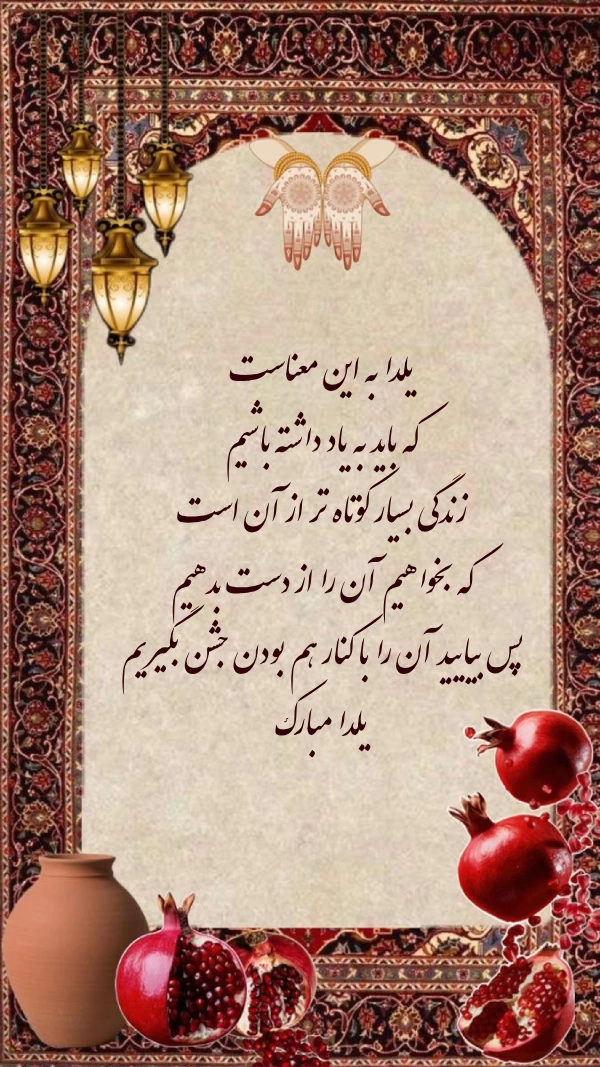 یلدا به این معناست
که باید به یاد داشته باشیم
زندگی بسیار کوتاه تر از آن است
که بخواهیم آن را از دست بدهیم
پس بیایید آن را با کنار هم بودن جشن بگیریم
یلدا مبارک